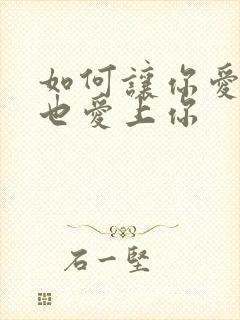 如何讓你愛
也愛上你
石一堅